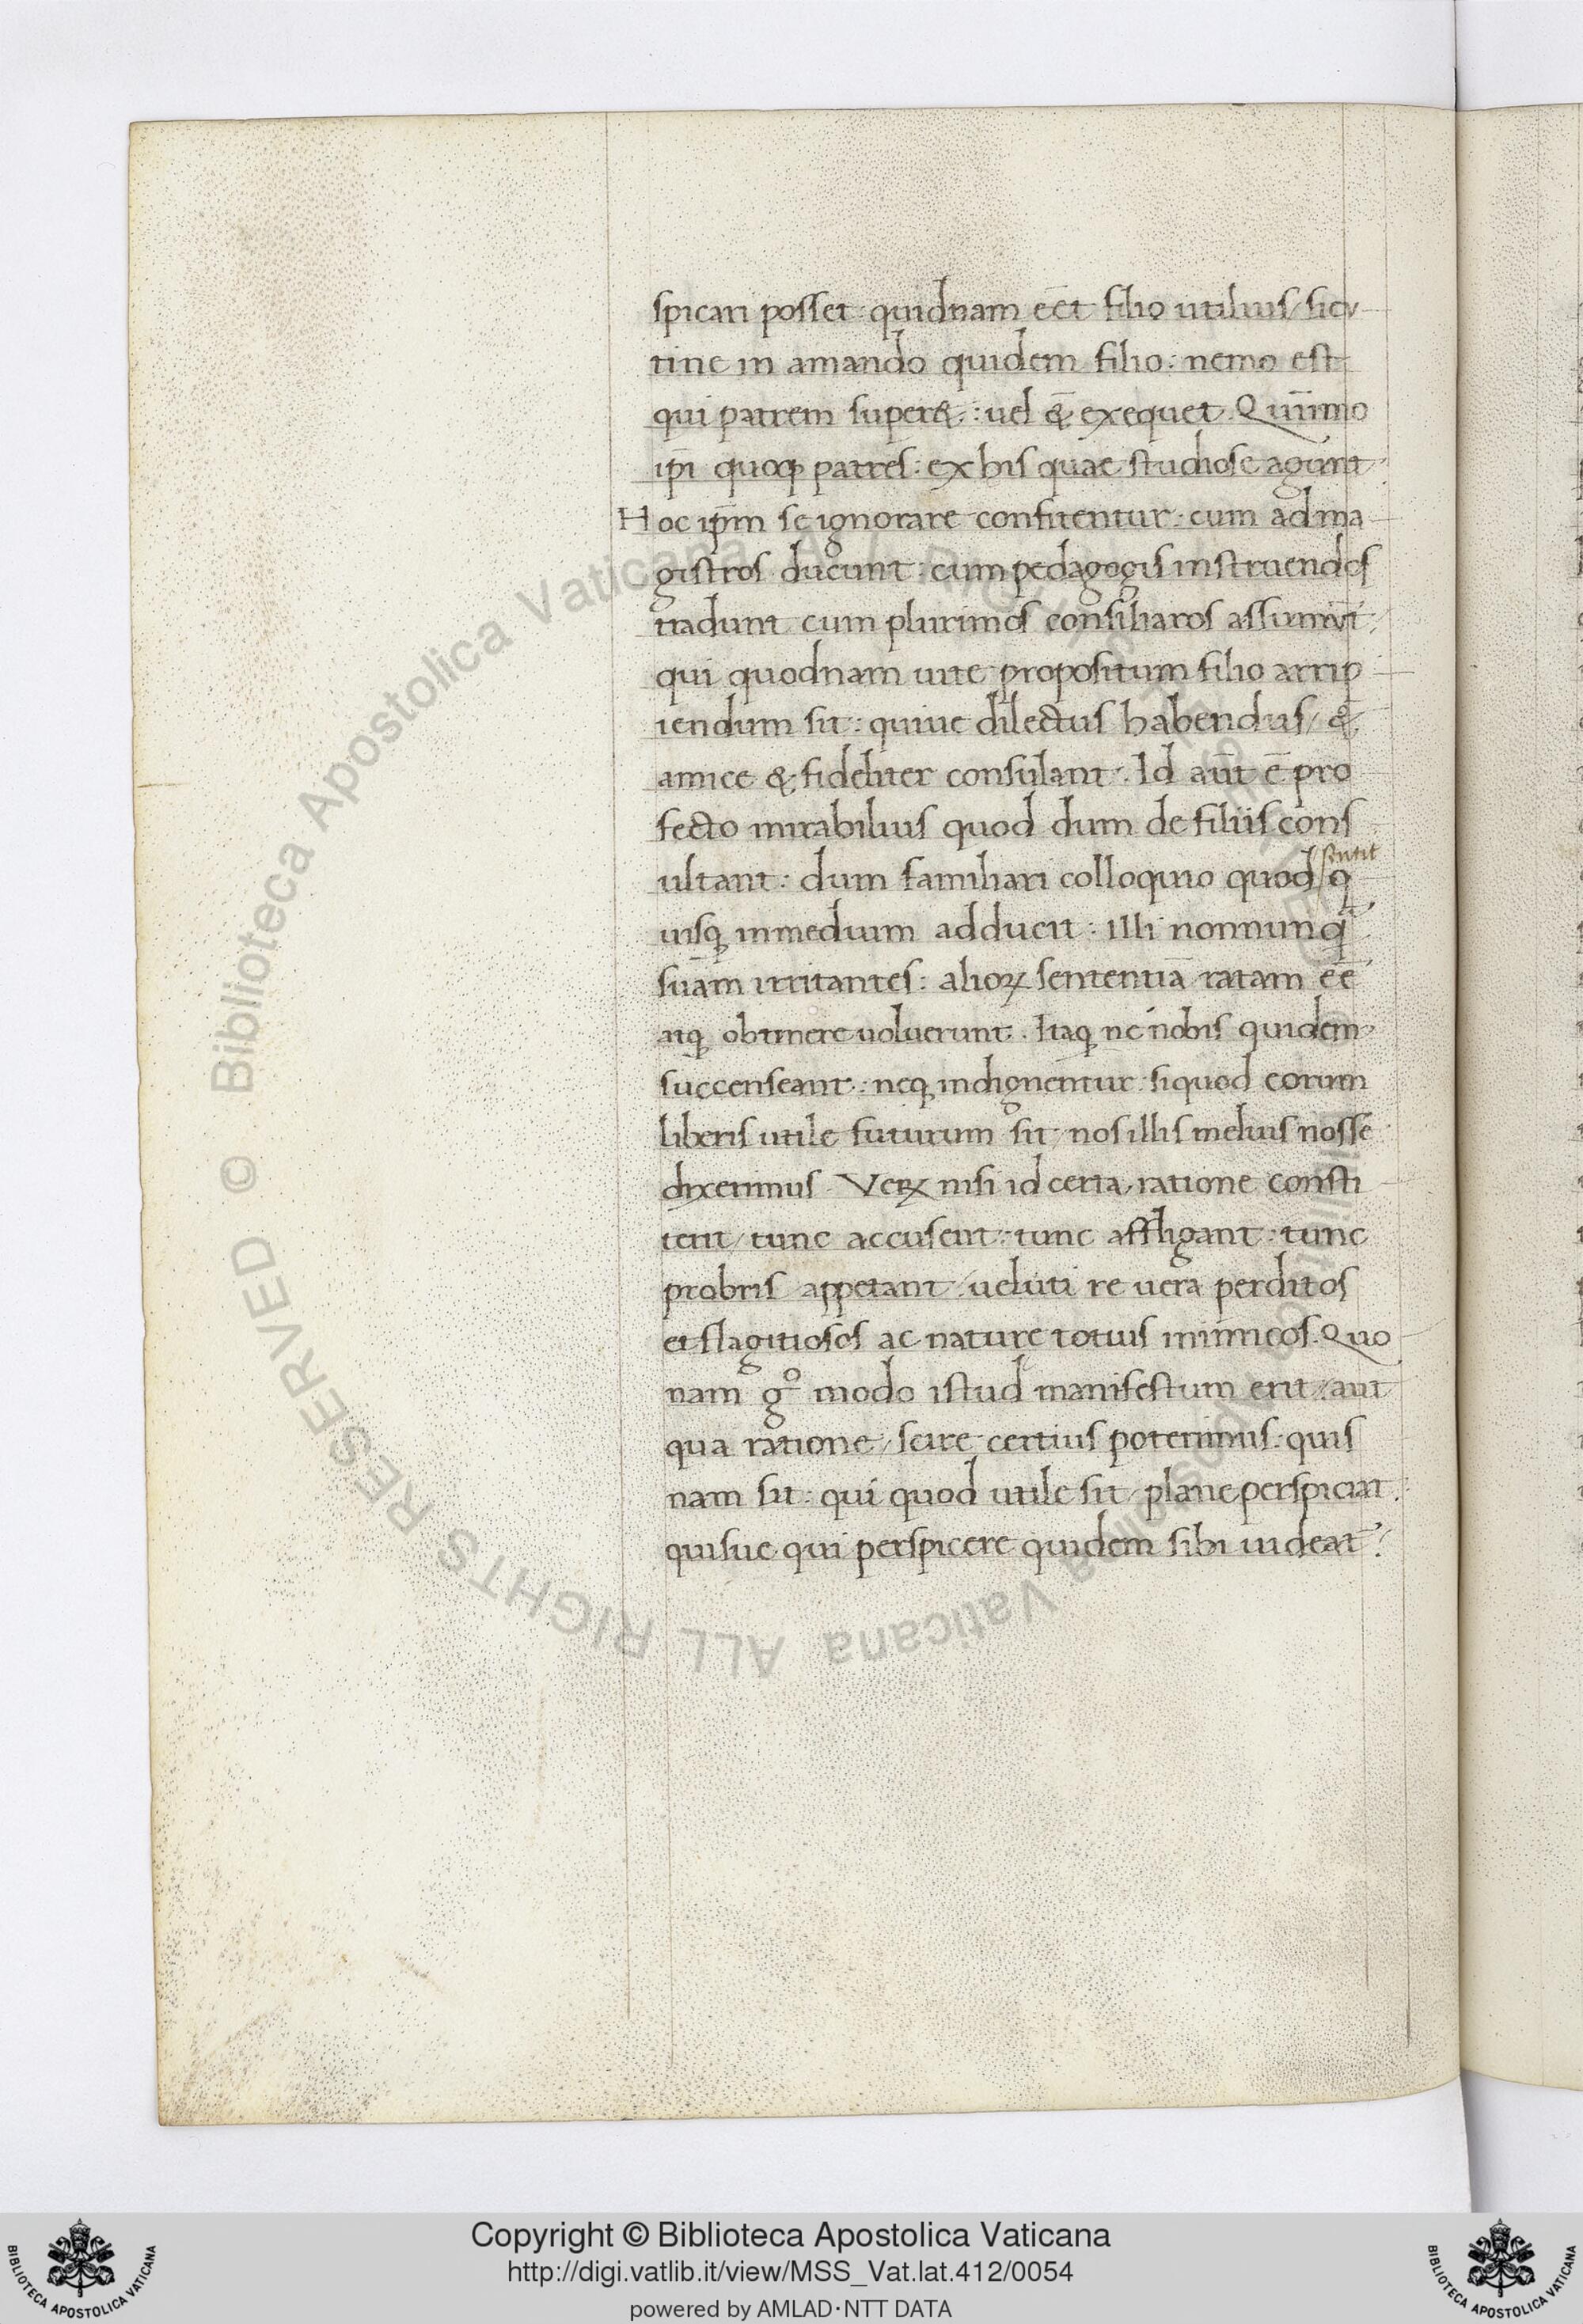 spicari posset: quidnam eēt filio utilius/ sicu
tine in amando quidem filio: nemo est
qui patrem superet: uel & exequet. Quīimo
ip̄i quoq; patres: ex his quae studiose agunt
Hoc ip̄m se ignorare confitentur: cum ad ma
gistros ducunt: cum pedagogis instruendos
tradunt cum plurimos consiliaros assumūt
qui quodnam uite propositum filio arrip
iendum sit: quiue dilectus habendus/ &
amice & fideliter consulant. Id aūt ē pro
fecto mirabilius quod dum de filiis cons
ultant: dum familiari colloquio quod/ q
sentit
uisq; inmedium adducit: illi nonnunq̄
suam irritantes: alioꝝ sententiā ratam eē
atq; obtinere uoluerunt. Itaq; ne nobis quidem
succenseant: neq; indignentur: siquod eorum
liberis utile futurum sit/ nos illis melius nosse
dixerimus Veꝝ nisi id certa ratione consti
terit/ tunc accusent: tunc affligant: tunc
probris appetant/ ueluti re uera perditos
et flagitiosos ac nature totius inimicos. Quo
nam g° modo istud manifestum erit/ aut
qua ratione/ scire certius poterimus: quis
nam sit: qui quod utile sit/ plane perspiciat.
quisue qui perspicere quidem sibi uideat?
© Biblioteca Apostolica Vaticana ALL RIGHTS RESERVED
Copyright © Biblioteca Apostolica Vaticana
http://digi.vatlib.it/view/MSS_Vat.lat.412/0054
powered by AMLAD·NTT DATA
BIBLIOTECA APOSTOLICA VATICANA
BIBLIOTECA APOSTOLICA VATICANA